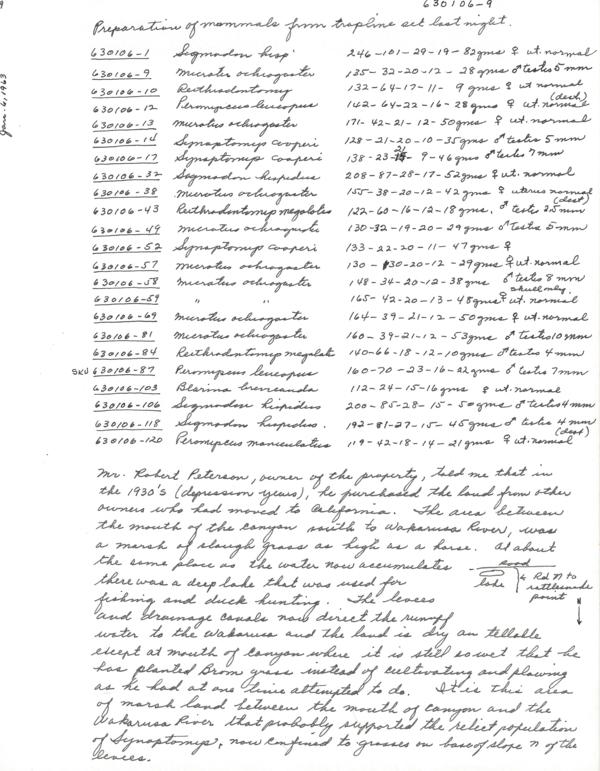 630106-9
Jan. 6, 1963
Preparation of mammals from trapline set last night.
630106-1 Sigmodon hisp' 246-101-29-19-82gms ♀ ut. normal
630106-9 Microtus ochrogaster 125-32-20-12-28gms ♂ testes 5 mm
630106-10 Reithrodontomy 132-64-17-11- 9 gms ♀ ut normal
630106-12 Peromyscus leucopus 142-64-22-16-28gms ♀ ut. normal (dest)
630106-13 Microtus ochrogaster 171-42-21-12-50gms ♀ ut. normal
630106-14 Synaptomys cooperi 128-21-20-10-35gms ♂ testes 5 mm
630106-17 Synaptomys cooperi 138-23-21-9-46gms ♂ testes 7mm
630106-32 Sigmodon hispidus 208-87-28-17-52gms ♀ ut. normal
630106-38 Microtus ochrogaster 155-38-20-12-42gms ♀ uterus normal
630106-43 Reithrodontomys megalotis 122-60-16-12-18gms. ♂ testes 2.5mm (dest)
630106-49 Microtus ochrogaster 130-32-19-20-29gms ♂ testes 5mm
630106-52 Synaptomys cooperi 133-22-20-11-47gms ♀
630106-57 Microtus ochrogaster 130-30-20-12-29gms ♀ ut. normal
630106-58 Microtus ochrogaster 148-34-20-12-38gms ♂ testes 8mm
630106-59 " " 165-42-20-13-48gms ♀ ut. normal skull only.
630106-69 Microtus ochrogaster 164-39-21-12-50gms ♀ ut. normal
630106-81 Microtus ochrogaster 160-39-21-12-53gms ♂ testes 10mm
630106-84 Reithrodontomys megalotis 140-66-18-12-10gms ♂ testes 4mm
SKU 630106-87 Peromyscus leucopus 160-70-23-16-22gms ♂ testes 7mm
630106-103 Blarina brevicauda 112-24-15-16gms ♀ ut. normal
630106-106 Sigmodon hispidus 200-85-28-15-50gms ♂ testes 4mm
630106-118 Sigmodon hispidus. 192-81-27-15-45gms ♂ testes 4 mm
630106-120 Peromyscus maniculatus 119-42-18-14-21gms ♀ ut. normal (dest)
Mr. Robert Peterson, owner of the property, told me that in
the 1930's (depression years), he purchased the land from other
owners who had moved to California. The area between
the mouth of the canyon south to Wakarusa River, was
a marsh of slough grass as high as a horse. At about
the same place as the water now accumulates
there was a deep lake that was used for
fishing and duck hunting. The levees
road
lake
Rd N to
rattlesnake
point
and drainage canals now direct the runoff
water to the Wakarusa and the land is dry an tellable
except at mouth of canyon where it is still so wet that he
has planted Brom grass instead of cultivating and plowing
as he had at one time attempted to do. It is this area
of marsh land between the mouth of canyon and the
Wakarusa River that probably supported the relict population
of Synaptomys, now confined to grasses on base of slope n of the
levees.